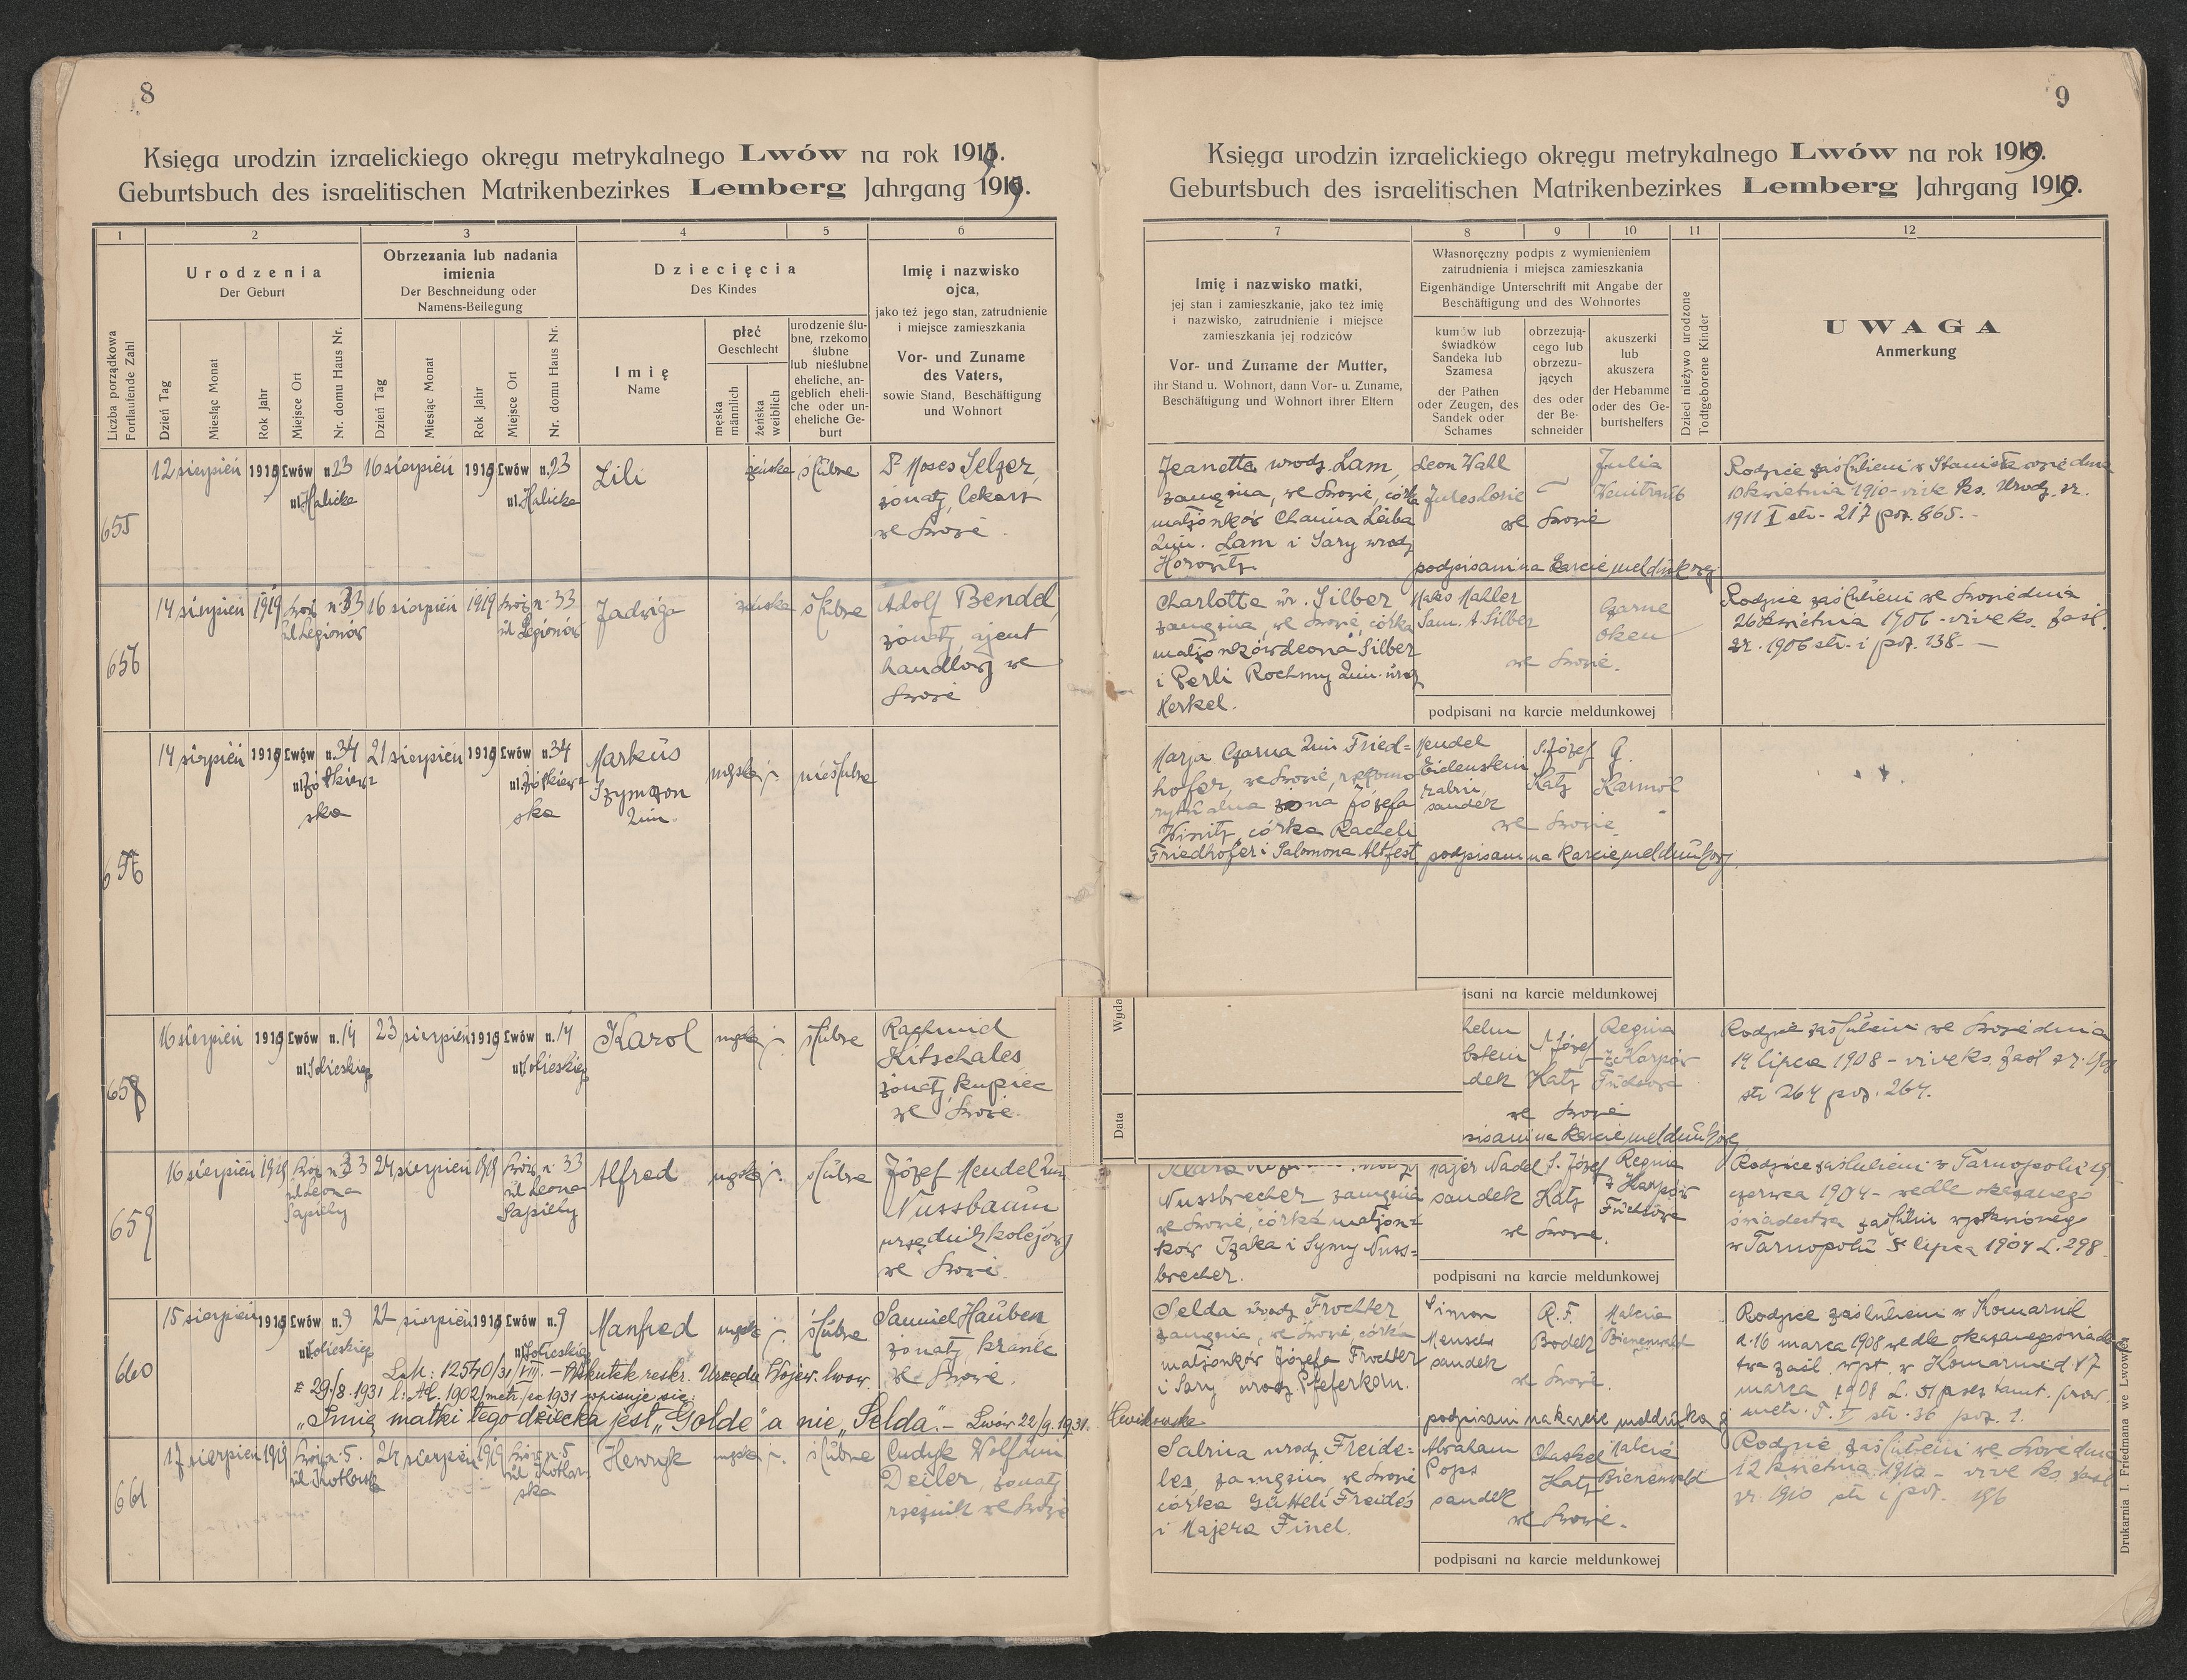 8
Księga urodzin izraelickiego okręgu metrykalnego Lwów na rok 1919.
Geburtsbuch des israelitischen Matrikenbezirkes Lemberg Jahrgang 1919.
1 2 3 4 5 6
Liczba porządkowa
Fortlaufende Zahl
Urodzenia
Der Geburt
Dzień Tag
Miesiąc Monat
Rok Jahr
Miejsce Ort
Nr. domu Haus Nr.
Obrzezania lub nadania
imienia
Der Beschneidung oder
Namens-Beilegung
Dzień Tag
Miesiąc Monat
Rok Jahr
Miejsce Ort
Nr. domu Haus Nr.
Dziecięcia
Des Kindes
Imię
Name
płeć
Geschlecht
męska
männlich
żeńska
weiblich
urodzenie ślu-
bne, rzekomo
ślubne
lub nieślubne
eheliche, an-
geblich eheli-
che oder un-
eheliche Ge-
burt
Imię i nazwisko
ojca,
jako też jego stan, zatrudnienie
i miejsce zamieszkania
Vor- und Zuname
des Vaters,
sowie Stand, Beschäftigung
und Wohnort
655
12 sierpień 1919 Lwów n.23 16 sierpień 1919 Lwów n.23
ul. Halicka ul. Halicka
Lili
żeńska ślubne
Dr Moses Selzer,
żonaty, lekarz
we Lwowie.
656
14 sierpień 1919 Lwów n. 33 16 sierpień 1919 Lwów n. 33
ul Legionów ul Legionów
Jadwiga
żeńska ślubne
Adolf Bendel,
żonaty, ajent
handlowy we
Lwowie
14 sierpień 1919 Lwów n.34 21 sierpień 1919 Lwów n.34
ul. Żółkiew-
ska
ul. Żółkiew-
ska
Markus
Szymon
2im.
męska nieślubne
658
16 sierpień 1919 Lwów n.14 23 sierpień 1919 Lwów n.14
ul. Sobieskiego ul. Sobieskiego
Karol
męska ślubne
Rachmiel
Kitschales
żonaty, kupiec
we Lwowie.
659
16 sierpień 1919 Lwów n. 33 24 sierpień 1919 Lwów n. 33
ul Leona
Sapiehy
ul Leona
Sapiehy
Alfred
męska ślubne
Józef Mendel 2im
Nussbaum
urzędnik kolejowy
we Lwowie.
660
15 sierpień 1919 Lwów n.9 22 sierpień 1919 Lwów n.9
ul. Sobieskiego ul. Sobieskiego
Manfred
męska ślubne
Samuel Hauben
żonaty, krawiec
we Lwowie.
L.M: 12540/31/VIII. – Wskutek reskr. Urzędu Wojew. lwow.
z 29./8. 1931 l: AC. 1902/metr/ex 1931 wpisuje się:
„Imię matki tego dziecka jest „Golde" a nie „Selda". – Lwów 22/9.1931.
661
17 sierpień 1919 Lwów n. 5. 24 sierpień 1919 Lwów n. 5
ul. Kotlarska
ul. Kotlar-
ska
Henryk
męska ślubne
Wolf 2im
Deiler, żonaty
rzeźnik we Lwowie
9
Księga urodzin izraelickiego okręgu metrykalnego Lwów na rok 1919.
Geburtsbuch des israelitischen Matrikenbezirkes Lemberg Jahrgang 1919.
7 8 9 10 11 12
Imię i nazwisko matki,
jej stan i zamieszkanie, jako też imię
i nazwisko, zatrudnienie i miejsce
zamieszkania jej rodziców
Vor- und Zuname der Mutter,
ihr Stand u. Wohnort, dann Vor- u. Zuname,
Beschäftigung und Wohnort ihrer Eltern
Własnoręczny podpis z wymienieniem
zatrudnienia i miejsca zamieszkania
Eigenhändige Unterschrift mit Angabe der
Beschäftigung und des Wohnortes
kumów lub
świadków
Sandeka lub
Szamesa
der Pathen
oder Zeugen, des
Sandek oder
Schames
obrzezują-
cego lub
obrzezu-
jących
des oder
der Be-
schneider
akuszerki
lub
akuszera
der Hebamme
oder des Ge-
burtshelfers
Dzieci nieżywo urodzone
Todtgeborene Kinder
UWAGA
Anmerkung
Jeanette urodz. Lam,
zamężna, we Lwowie, córka
małżonków Chaima Leiba
2im. Lam i Sary urodz
Horowitz
Leon Wahl
we Lwowie
Julia
podpisani na karcie meldunkowej
Rodzice zaślubieni w Stanisławowie dnia
10 kwietnia 1910 – vide ks. Urodz. zr.
1911 I str. 217 poz. 865. –
Charlotte ur. Silber
zamężna, we Lwowie, córka
małżonków Leona Silber
i Perli Rochmy 2im. urodz
Merkel.
Maks Mahler
Sam. A Silber
we Lwowie.
podpisani na karcie meldunkowej
Rodzice zaślubieni we Lwowie dnia
26 kwietnia 1906 – vide ks. zaśl.
zr. 1906 str. i poz. 138. –
Marja Czarna 2im Fried-
hofer, we Lwowie, rzekomo
rytualna żona Józefa
córka Racheli
Friedhofer i Salomona Altfest
Mendel
Eidenstein
rabin,
sandek
Józef
Katz
G.
Karmol
we Lwowie.
podpisani na karcie meldunkowej
isani na karcie meldunkowej
Wyda
Data
helm
bstein
dek
Józef
Katz
Regina
z Karpów
Fuchsowa
we Lwowie
pisani na karcie meldunkowej
Rodzice zaślubieni we Lwowie dnia
19 lipca 1908 – vide ks. zaśl zr. 1908
str 264 poz. 264.
Nussbrecher zamężna
we Lwowie, córka małżon-
ków Izaka i Symy Nuss-
brecher.
Majer Nadel
sandek
S. Józef
Katz
Regina
z Karpów
Fuchsowa
we Lwowie.
podpisani na karcie meldunkowej
Rodzice zaślubieni w Tarnopolu 19
czerwca 1904 – wedle okazanego
świadectwa zaślubin wystawionego
w Tarnopolu 5 lipca 1904 L. 298.
Selda urodz Trochter
zamężna, we Lwowie, córka
małżonków Józefa Trochter
i Sary urodz Pfeferkorn.
Simon
Mensch
sandek
R. F.
Bodek
Malcia
Bienenwald
we Lwowie.
podpisani na karcie meldunkowej
Rodzice zaślubieni w Komarnie
d. 16 marca 1908 wedle okazanego świadec
twa zaśl. wyst. w Komarnie d. 17
marca 1908 L. 51
metr. T. I str. 36 poz. 1.
Salina urodz. Freide-
les, zamężna we Lwowie
córka Gütteli Freides
i Majera Finel.
Abraham
Pops
sandek
Chaskel
Katz
Malcia
Bienenwald
we Lwowie.
podpisani na karcie meldunkowej
Rodzice zaślubieni we Lwowie dnia
12 kwietnia 1910 – vide ks zaśl
zr. 1910 str i poz. 196
Drukarnia I. Friedmana we Lwowie